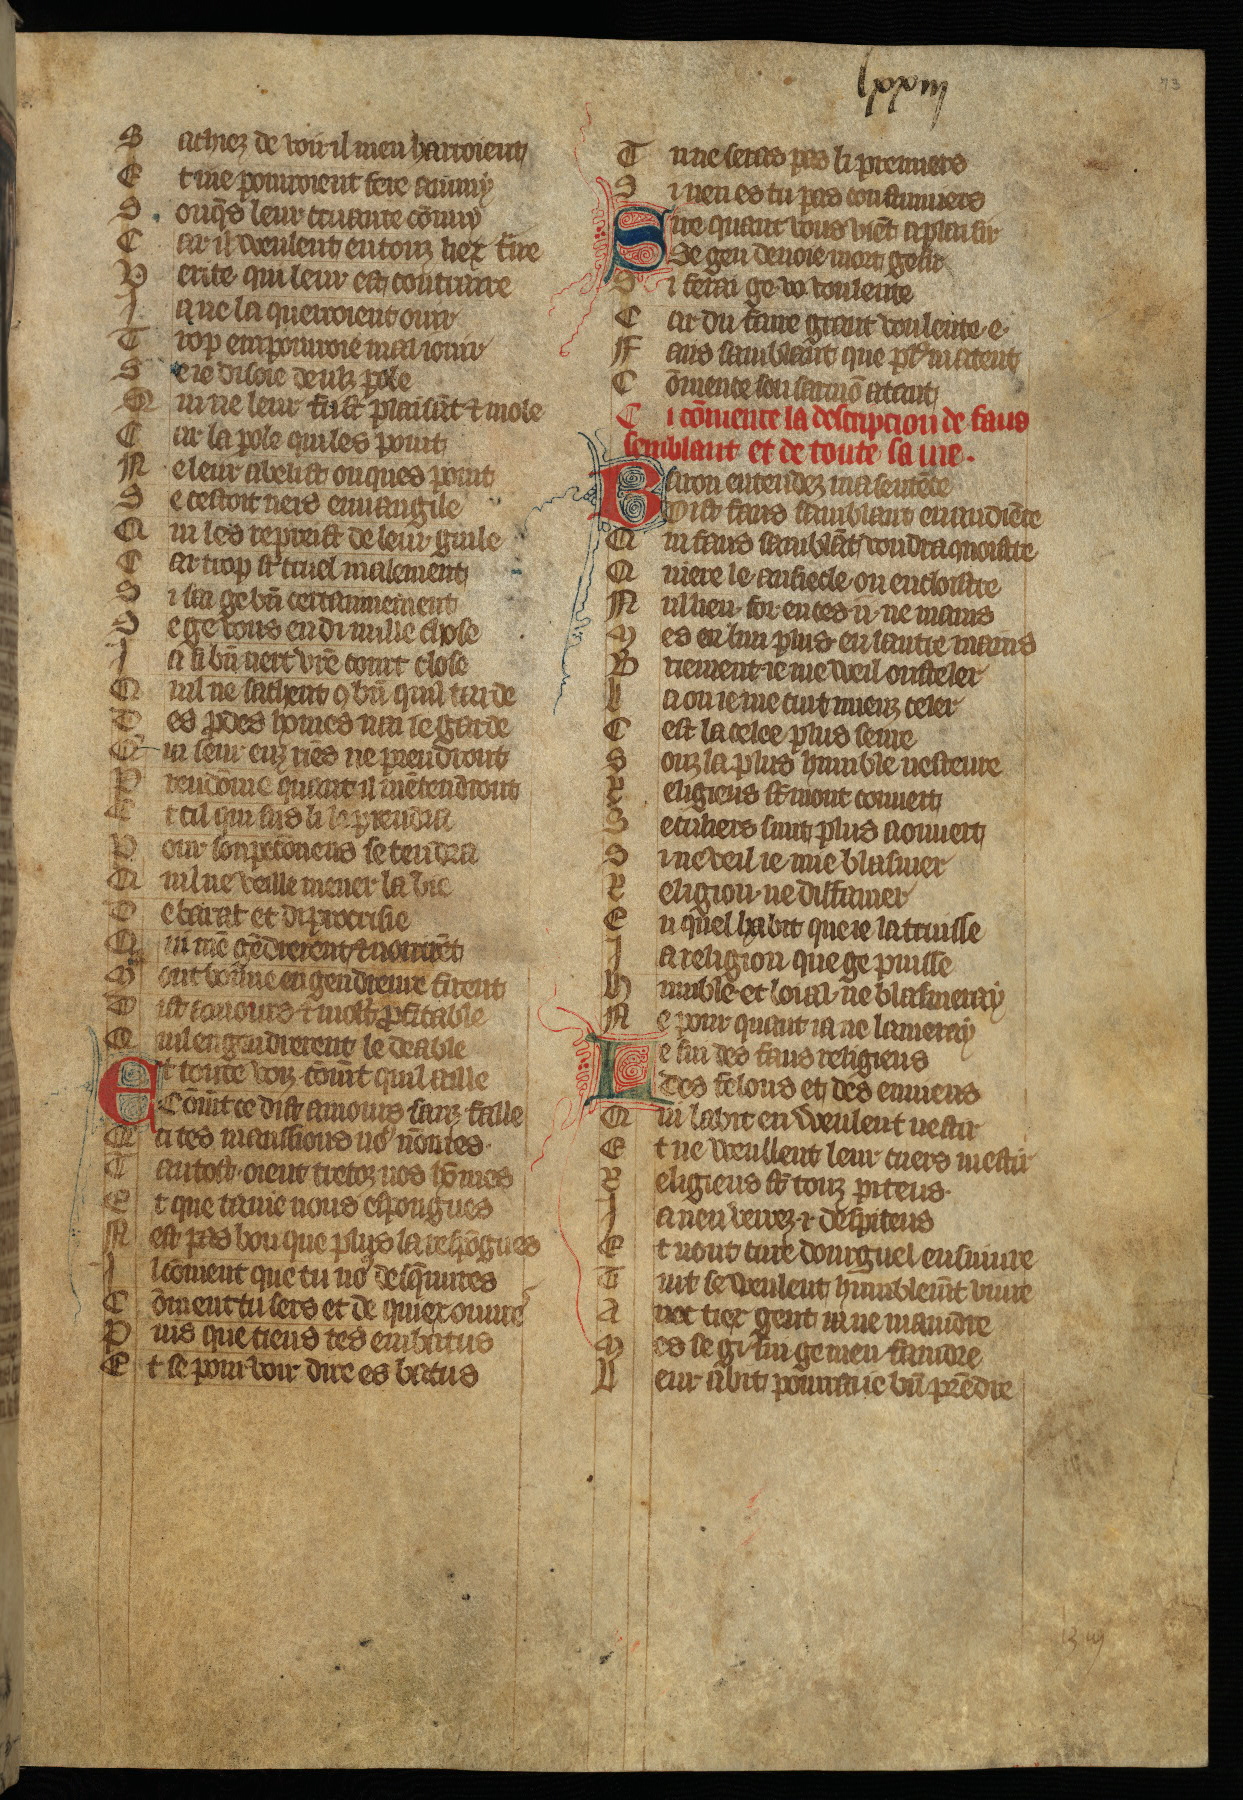 lxxiij
73
S achiez de voir il men harroient
E t me pourroient fere anuny
D onqs leur cruaute cōmy
C ar il weulent en touz liex fire
V erite qui leur est contraire
J a ne la querroient ouir
T rop em pourroie mal ioir
S e ie disoie deulz pole
Q ui ne leur fust plaisāt ⁊ mole
C ar la pole qui les point
N e leur abelist onques point
S e cestoit neis euuangile
Q ui les repreist de leur guile
C ar trop sōt cruel malement
S i sai ge bn̄ certainnement
S e ge vous en di nulle chose
J a si bn̄ nert vre court close
Q uil ne sachent 9bn̄ quil tarde
D es pdes homes nai ie garde
Q ui seur euz ries ne prendront
P reudōme quant il mētendront
E t cil qui sus li le prendra
P our sonpeconeus se tendra
Q uil ne veille mener la vie
D e barat et dipocrisie
Q ui mē gēdrerent ⁊ norrirēt
M out bonne engendreure firent
D ist amours ⁊ molt pfitable
Q uil engendrerent le deable
E t toute voiz comt quil aille
Cōuit ce dist amours sanz falle
Q ci tes manssions no' nōmes
T antost oient tretoz nos hōmes
E t que ta uie nous espongues
N est pas bon que plus la respōgues
J l cōuient que tu no' descueures
C ōment tu sers et de quiex ouure
P uis que ciens tes embatus
E t se pour voir dire es batus
T u ne seras pas li premiers
S i nen es tu pas coustumiers
S ire quant vous viēt a plaisir
Se gen deuoie mort gesir
S i ferai ge vo voulente
C ar du faire grant voulente e
F aus samblant que pl' ni atent
C ōmence son sarmō atant
C i cōmence la description de faus
semblant et de toute sa uie.
B aron entendez ma sentēce
Dist faus samblant en audiēce
Q ui faus samblāt voudra qnoistre
Q uiere le au siecle ou en cloistre
N ul lieu for en ces ii ne mains
M es en lun plus en lautre mains
B riement ie me weil ousteler
L a ou ie me cuit mieuz celer
C est la celee plus seure
S ouz la plus humble uesteure
R eligieus sōt mout couuert
S eculiers sunt plus aouuert
S i ne veil ie mie blasmer
R eligion ne diffamer
E n quel habit que ie la truisse
J a religion que ge puisse
H umble et loial ne blasmeray
N e pour quant ia ne lameray
L e sui des faus religieus
Des felons et des enuieus
Q ui labit en weulent uestir
E t ne weullent leur cuers mestir
R eligieus sōt touz piteus
J a nen verrez i despiteus
E t nont cure dourguel ensuiure
T uit se weulent humblemt viure
A uec tiex gent ia ne maindre
M es se gi sui ge men faindre
L eur abit pourraie bn̄ prēdre